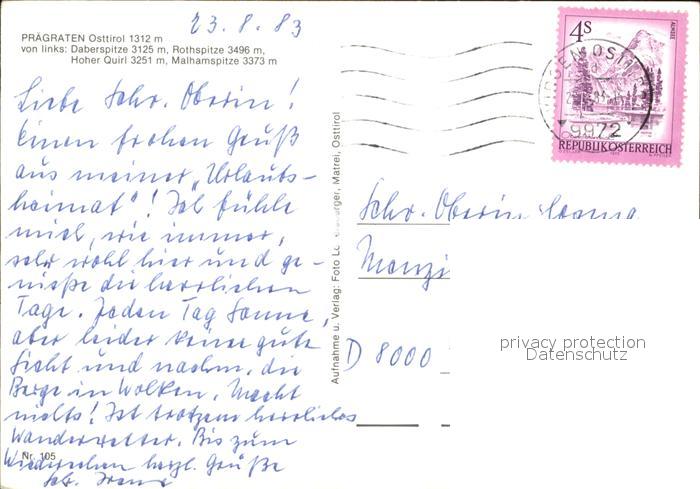 23.8.83
PRÄGRATEN Osttirol 1312 m
von links: Daberspitze 3125 m, Rothspitze 3496 m,
Hoher Quirl 3251 m, Malhamspitze 3373 m
Liebe Schw. Oberin!
Einen frohen Gruß
aus meiner „Urlaubs-
heimat"! Ich fühle
mich, wie immer,
sehr wohl hier und ge-
nieße die herrlichen
Tage. Jeden Tag Sonne,
aber leider keine gute
Sicht und nachm. die
Berge in Wolken. Macht
nichts! Ist trotzdem herrliches
Wanderwetter. Bis zum
Wiedersehen herzl. Grüße
Nr. 105
Schw. Irene
Aufnahme u. Verlag: Foto Matrei, Osttirol
4S
ALMSEE
OSTTIROL
9972
REPUBLIK ÖSTERREICH
Schw. Oberin
Menzi
D 8000
privacy protection
Datenschutz